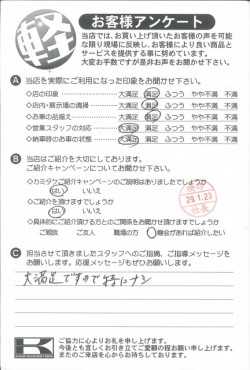 軽
お客様アンケート
当店では、お買い上げ頂いたお客様の声を可能
な限り現場に反映し、お客様により良い商品と
サービスを提供する事に努めています。
大変お手数ですが是非お声をお聞かせ下さい。
A 当店を実際にご利用になった印象をお聞かせ下さい。
◇店の印象 大満足 満足 ふつう やや不満 不満
◇店内・展示場の清掃 大満足 満足 ふつう やや不満 不満
◇お車の品揃え 大満足 満足 ふつう やや不満 不満
◇営業スタッフの対応 大満足 満足 ふつう やや不満 不満
◇納車時のお車の状態 大満足 満足 ふつう やや不満 不満
B 当店はご紹介を大切にしております。
ご紹介キャンペーンについてお聞かせ下さい。
◇カミタケご紹介キャンペーンのご説明はありましたでしょうか
はい いいえ
◇ご紹介を頂けますでしょうか
はい いいえ
◇具体的にご紹介頂ける方とのご関係をお聞かせ頂けますでしょうか
ご親族 ご友人 職場の方 機会があれば紹介したい
29.1.23
社長
C 担当させて頂きましたスタッフへのご指摘、ご指導メッセージを
お願いします。応援メッセージもぜひお願いします。
大満足ですので特にナシ
ご協力に心よりお礼を申し上げます。
今後とも宜しくお引き立てご愛顧の程お願い申し上げます。
またのご来店を心からお待ちしております。